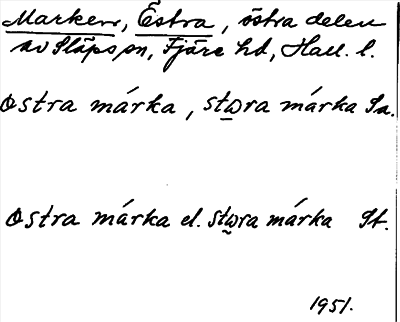 Marken, Östra, östra delen
av Släps sn, Fjäre hd, Hall. l.
østra márka, stωra márka Sa.
østra márka el. stωra márka St.
1951.